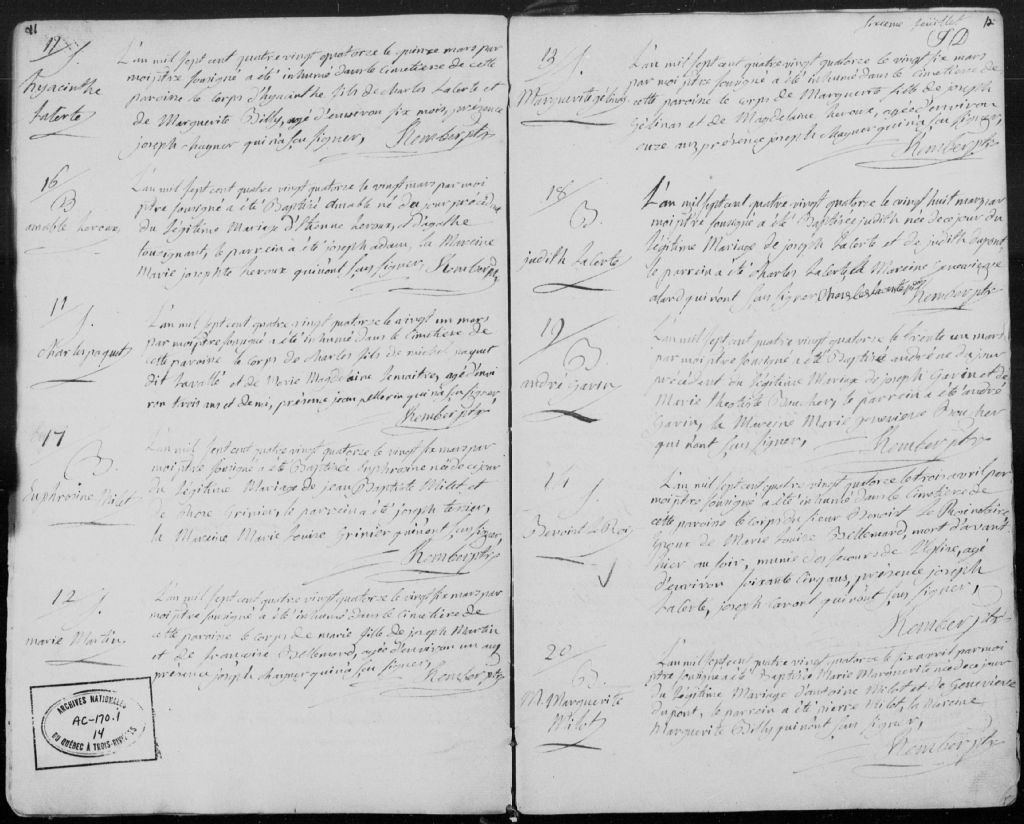 11
12 S.
hyacinthe
laterte
L'an mil sept cent quatre vingt quatorze le quinze mars par
moi ptre sousigné a été inhumé dans le cimetiere de cette
paroisse le corps d'hyacinthe fils de charles Laterte et
de Marguerite Billy, agé d'environ six mois, présence
joseph chayner qui n'a sçu signer,
16
B
amable heroux
L'an mil sept cent quatre vingt quatorze le vingt mars par moi
ptre sousigné a été Baptisé amable né du jour précédent
du légitime Mariage d'Etienne heroux, et d'agathe
tousignant, le parrein a été joseph adam, la Mareine
Marie josephte heroux qui n'ont sçu signer,
11
S.
charles paquet
L'an mil sept cent quatre vingt quatorze le vingt un mars
par moi ptre sousigné a été inhumé dans le cimetiere de
cette paroisse le corps de charles fils de michel paquet
dit lavallé et de Marie Magdelaine lemaitre, agé d'envi
ron trois ans et demi, présence jean pellerin qui n'a sçu signer
17
B.
Euphrosine Milot
L'an mil sept cent quatre vingt quatorze le vingt six mars par
moi ptre sousigné a été Baptisée Euphrosine née de ce jour
du légitime Mariage de jean Baptiste Milot et
de Grinier, le parrein a été joseph
la Mareine Marie Louise Grinier qui n'ont sçu signer,
12 S.
marie Martin
L'an mil sept cent quatre vingt quatorze le vingt six mars par
moi ptre sousigné a été inhumé dans le cimetiere de
cette paroisse le corps de marie fille de joseph Martin
et de francoise Bellemard, agée d'environ un an
présence joseph chayner qui n'a sçu signer,
ARCHIVES NATIONALES
AC-170.1
14
DU QUÉBEC À TROIS-RIVIÈRES
sixieme feuillet 12
13 S.
Marguerite gélinas
L'an mil sept cent quatre vingt quatorze le vingt six mars
par moi ptre sousigné a été inhumé dans le cimetiere de
cette paroisse le corps de Marguerite fille de joseph
Gélinas et de Magdelaine heroux, agée d'environ
onze ans, présence joseph chayner qui n'a sçu signer,
18
B.
judith Laterte
L'an mil sept cent quatre vingt quatorze le vingt huit mars par
moi ptre sousigné a été Baptisée judith née de ce jour du
légitime Mariage de joseph Laterte et de judith dupont
le parrein a été charles Laterte, la Mareine Genevieve
alard qui n'ont sçu signer
19
B
andré Gavin
L'an mil sept cent quatre vingt quatorze le trente un mars
par moi ptre sousigné a été Baptisé andré né du jour
précédent du légitime Mariage de joseph Gavin et de
Marie Boucher, le parrein a été andré
Gavin, la Mareine Marie genevieve Boucher
qui n'ont sçu signer,
14 S.
Benoist LeRoi
L'an mil sept cent quatre vingt quatorze le trois avril par
moi ptre sousigné a été inhumé dans le cimetiere de
cette paroisse le corps du sieur Benoist Le Roi
Epoux de Marie Louise Bellemard, mort d'avant
hier au soir, munie des secours de l'Eglise, agé
d'environ soixante cinq ans, présence joseph
Laterte, joseph qui n'ont sçu signer,
20
B.
M. Marguerite
Milot
L'an mil sept cent quatre vingt quatorze le six avril par moi
ptre sousigné a été Baptisée Marie Marguerite née de ce jour
du légitime Mariage d'antoine Milot et de Genevieve
dupont, le parrein a été pierre Milot, la Mareine
Marguerite Billy qui n'ont sçu signer,